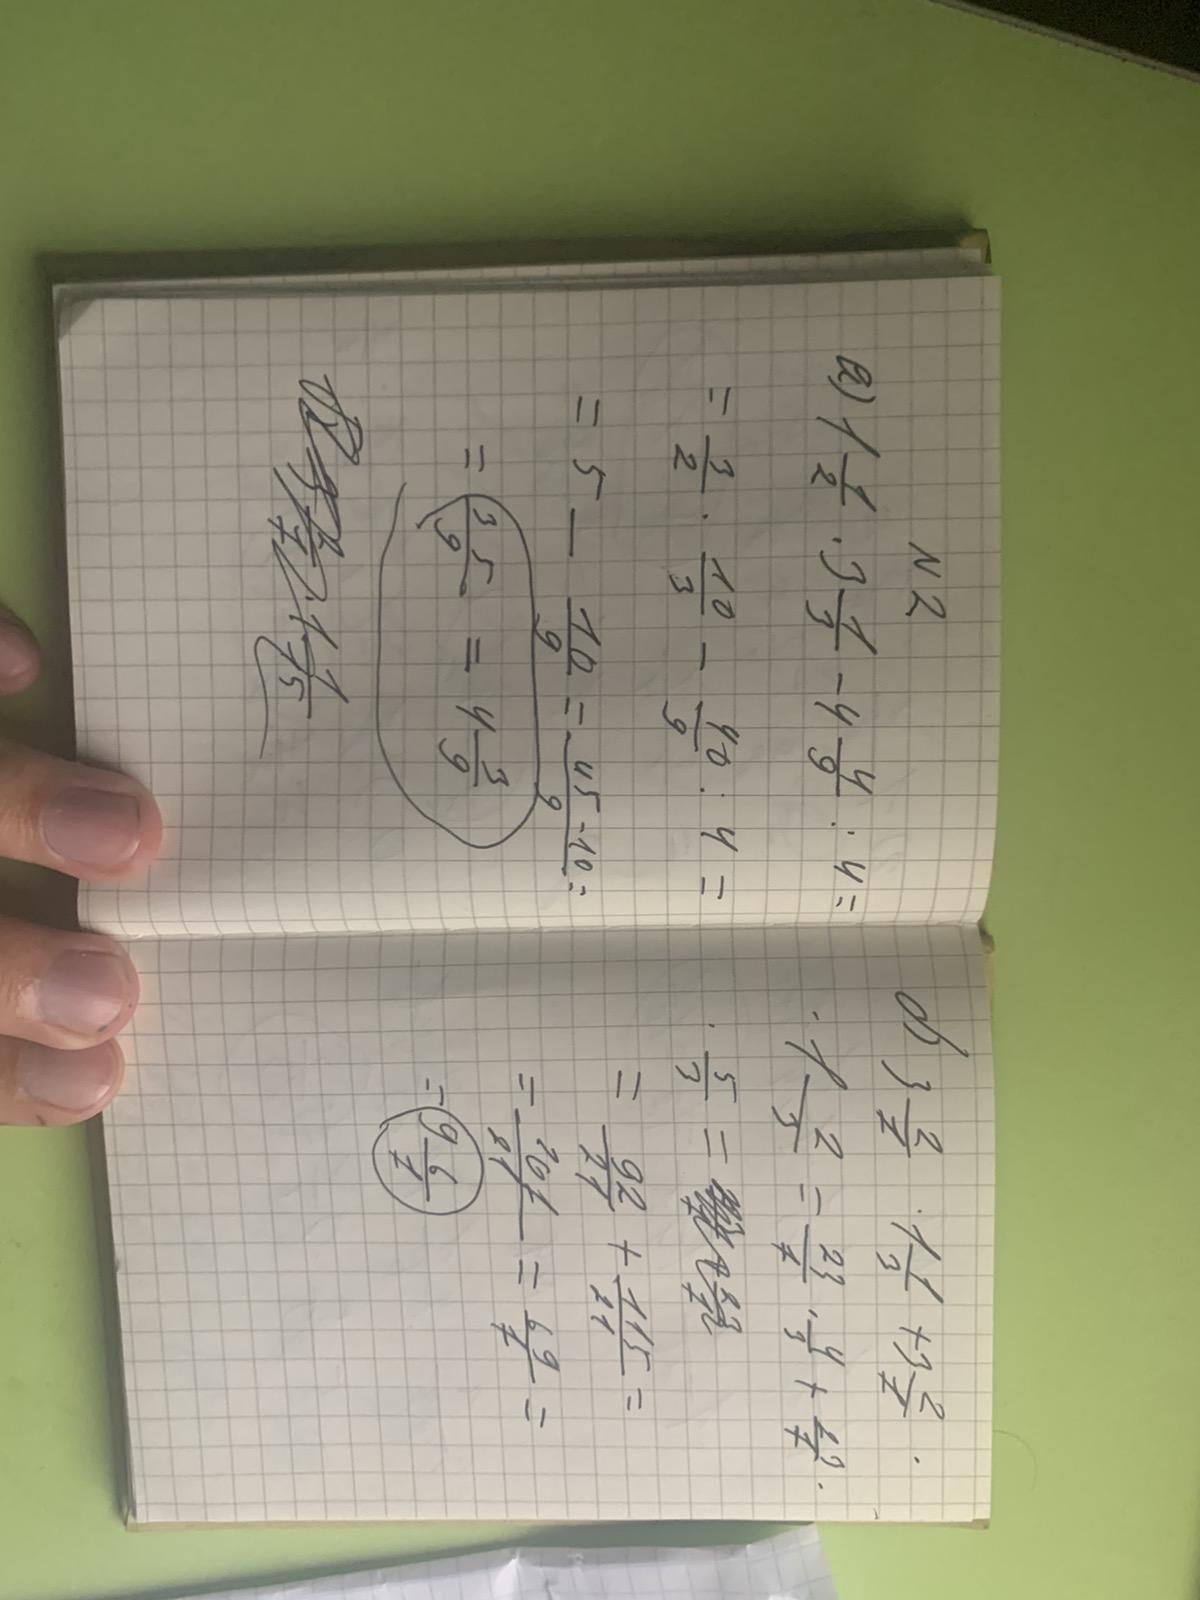 N2
а) 1 1/2 · 3 1/3 - 4 4/9 : 4 =
= 3/2 · 10/3 - 40/9 : 4 =
= 5 - 10/9 = 45-10/9 =
= 35/9 = 4 3/9
б) 3 2/7 · 1 1/3 + 3 2/7 ·
· 1 2/3 = 23/7 · 4/3 + 23/7 ·
· 5/3 =
= 92/21 + 115/21 =
= 207/21 = 69/7 =
= 9 6/7